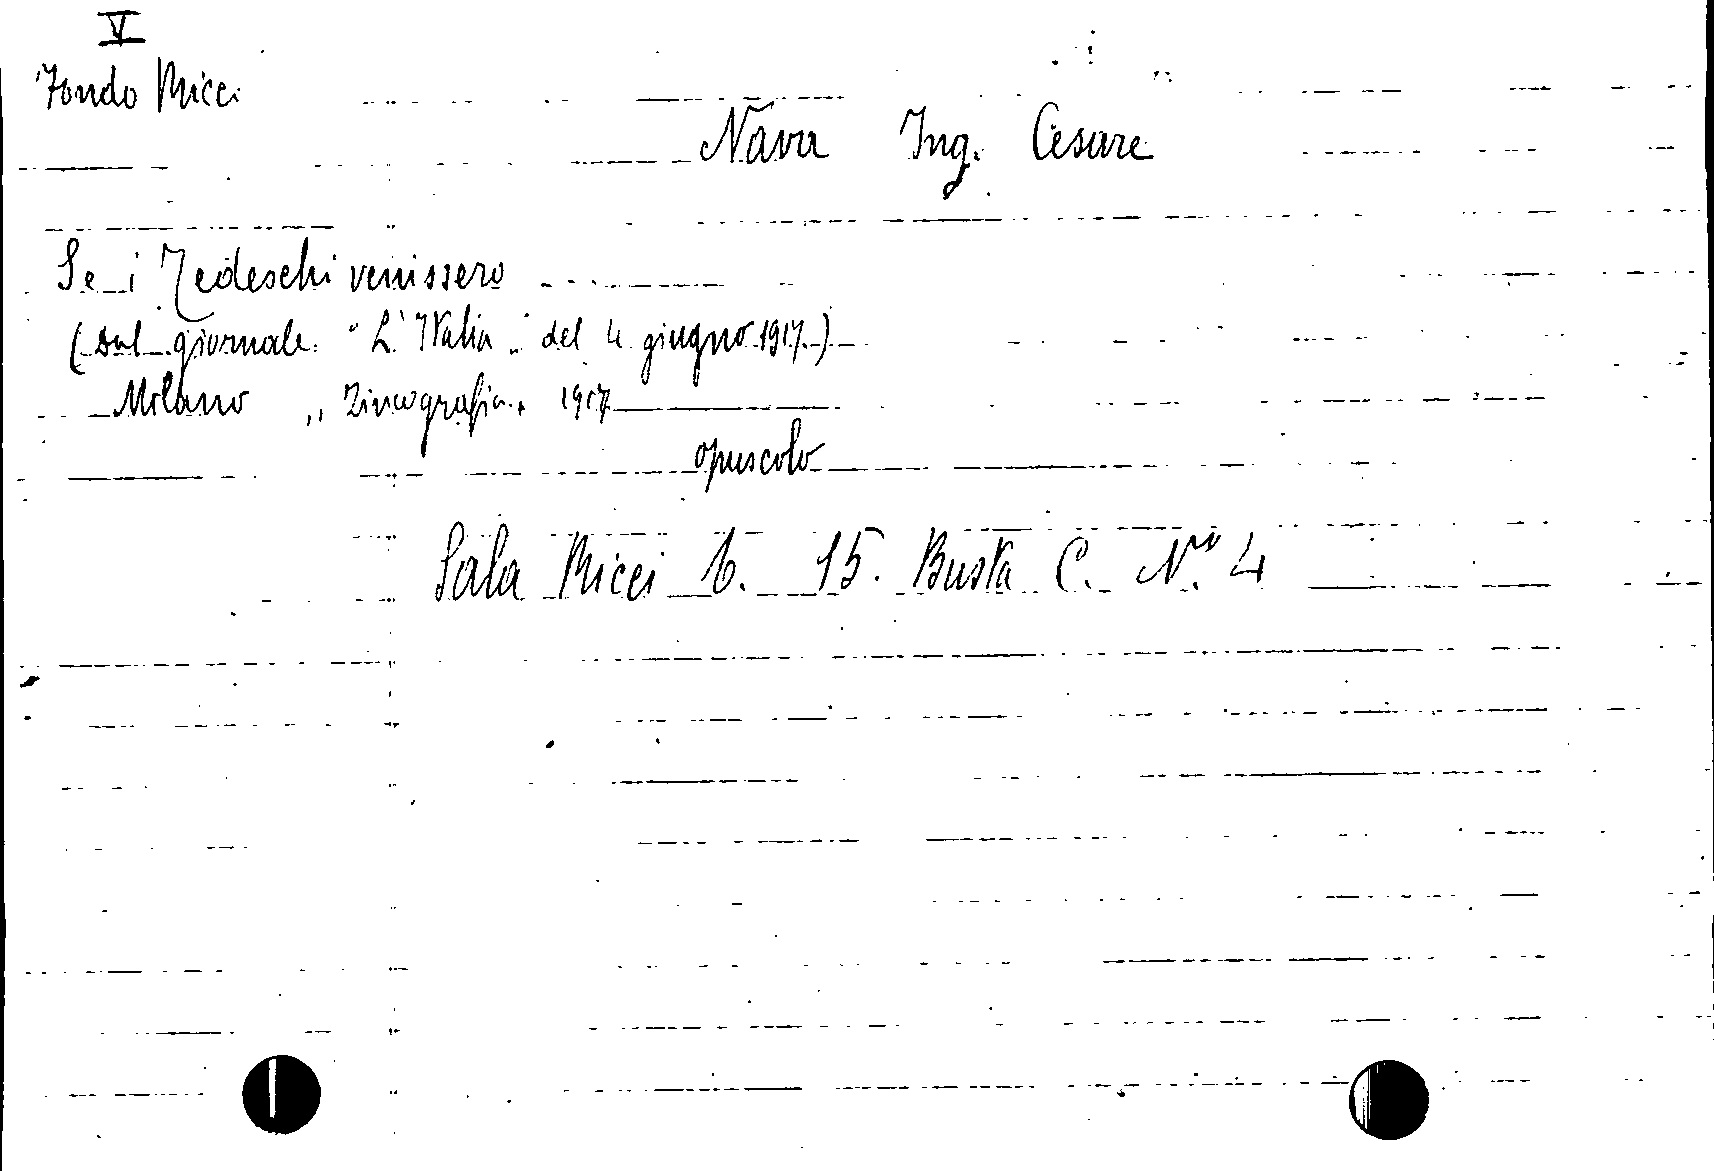 V
Fondo Ricci
Nava Ing. Cesare
Se i Tedeschi venissero
(Dal giornale "L'Italia" del 4 giugno 1917.)
Milano ,, Zincografia, 1917
opuscolo
Sala Ricci b. 15. Busta C. N.º 4